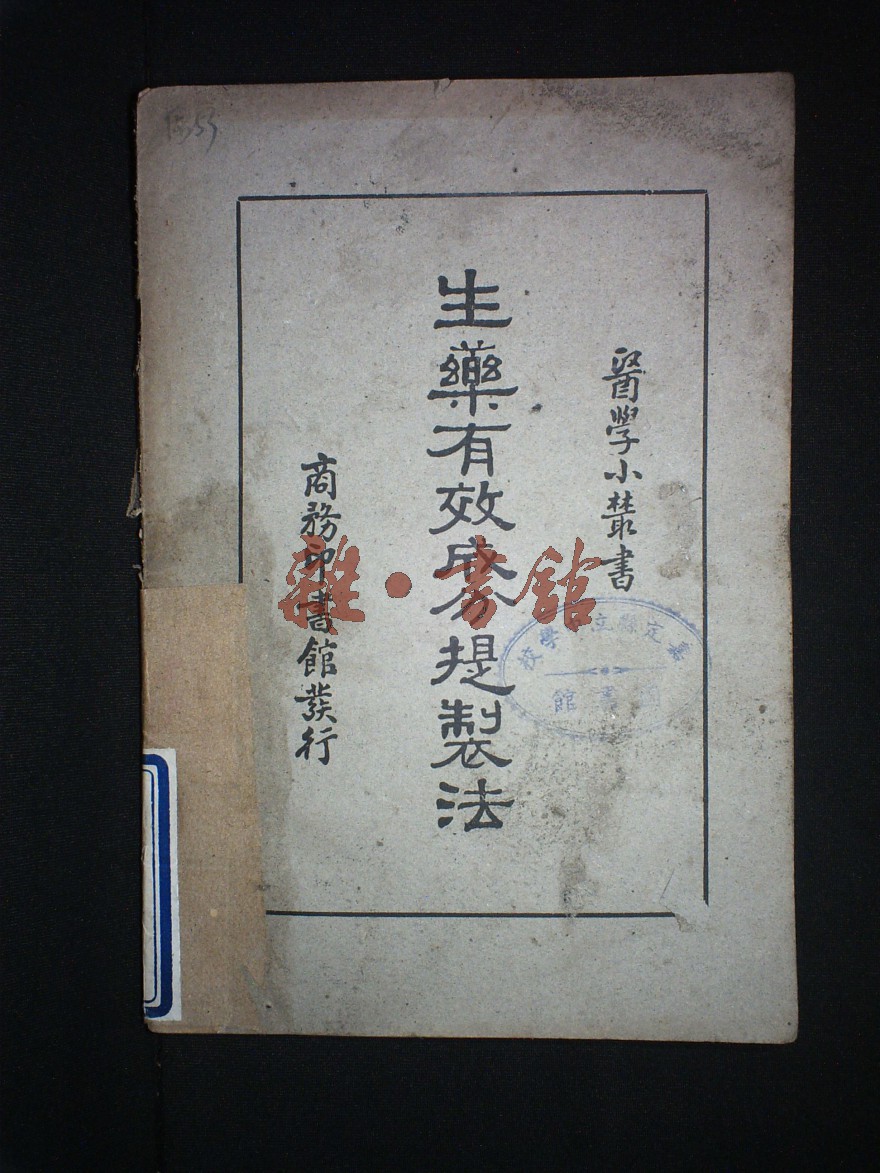 醫學小叢書
生藥有效成分提製法
商務印書館發行
雜·書館
嘉定縣立 學校
圖書館